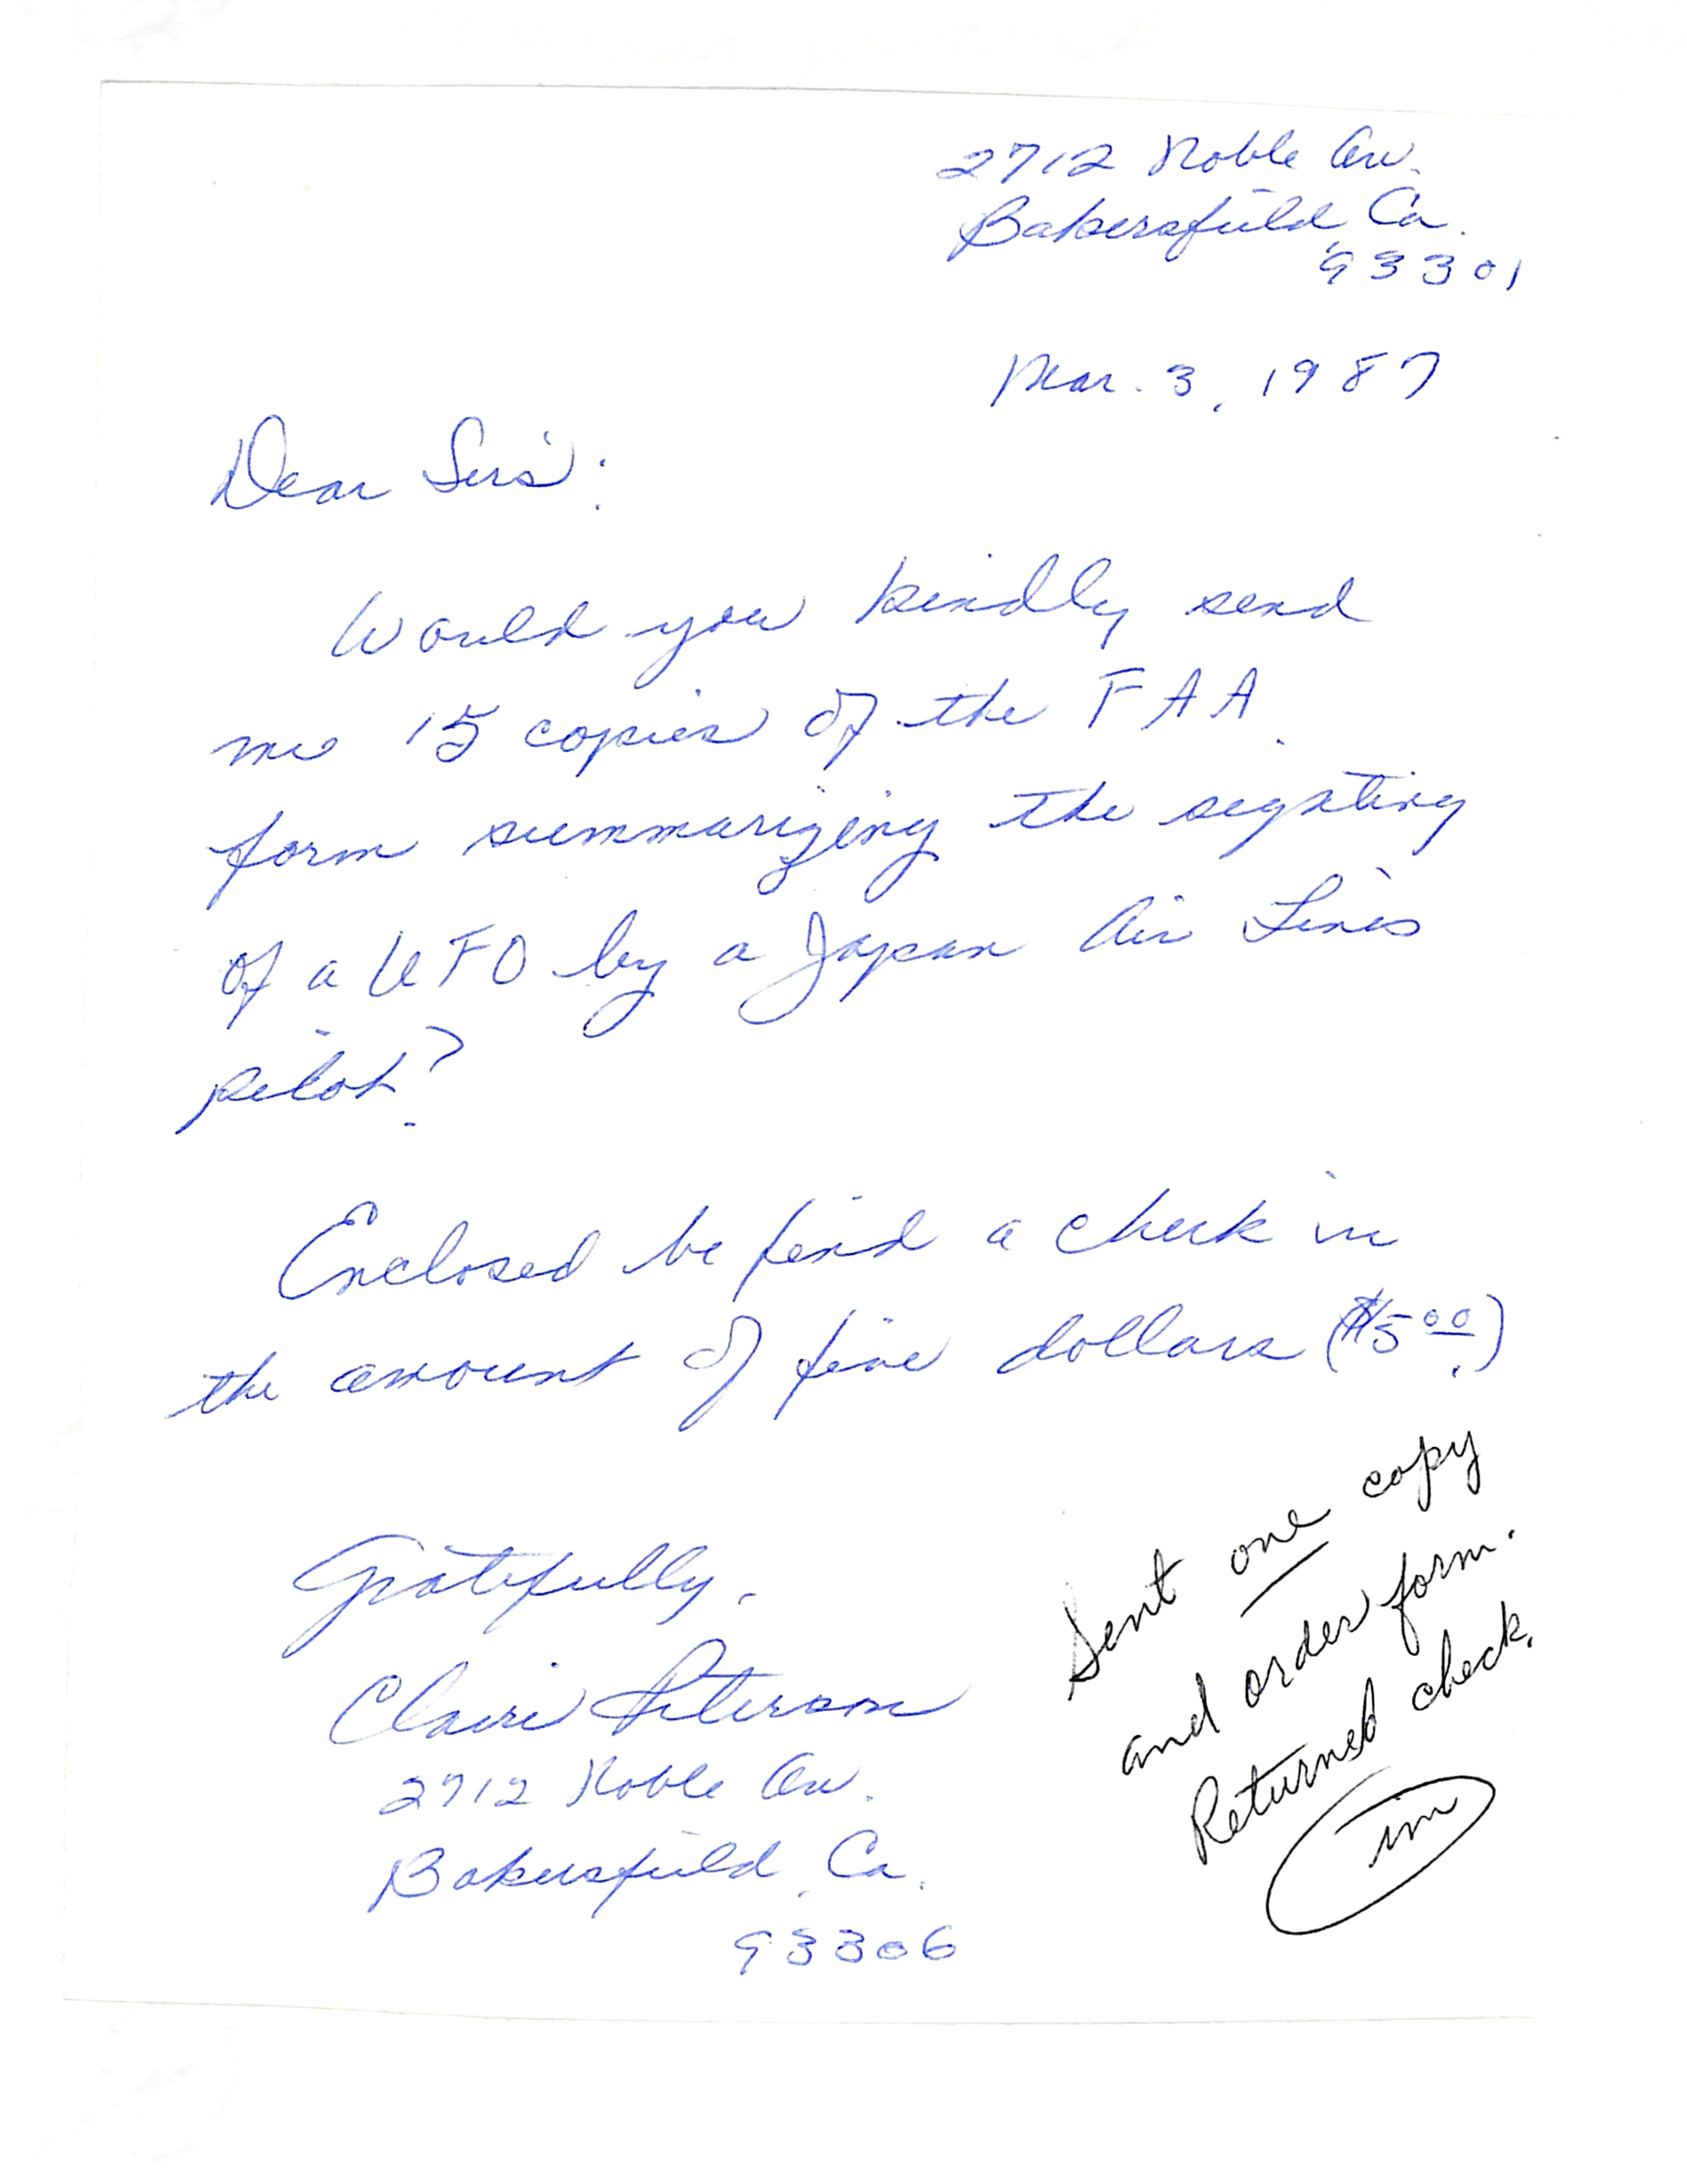 2712 Noble Av.
Bakersfield Ca.
93301
Mar. 3, 1987
Dear Sirs:
Would you kindly send
me 15 copies of the FAA.
form summarizing the sighting
of a UFO by a Japan Air Lines
pilot?
Enclosed be find a check in
the amount of five dollars ($5.00)
Gratefully,
Claire Peterson
2712 Noble Av.
Bakersfield, Ca.
93306
Sent one copy
and order form.
Returned check.